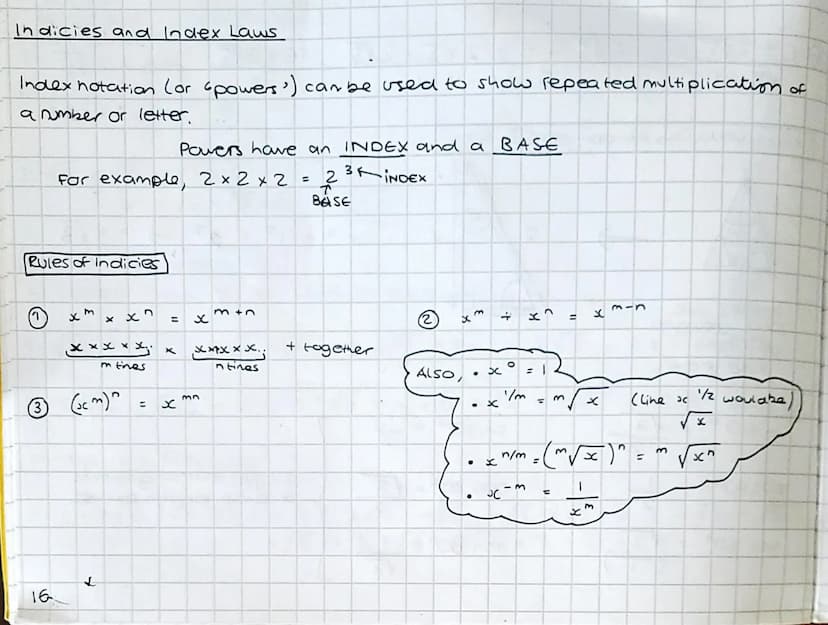 Indicies and Index Laws
Index notation (or 'powers') can be used to show repeated multiplication of
a number or letter.
Powers have an INDEX and a BASE
For example, 2 × 2 × 2 = 2³ ← INDEX
↑
BASE
Rules of Indicies
① xᵐ × xⁿ = xᵐ⁺ⁿ
x × x × x.. × x × x × x.. + together
m times n times
② xᵐ ÷ xⁿ = xᵐ⁻ⁿ
③ (xᵐ)ⁿ = xᵐⁿ
Also, • x⁰ = 1
• x^1/m = ᵐ√x (like x^1/2 would be)
√x
• x^n/m = (ᵐ√x)ⁿ = ᵐ√xⁿ
• x⁻ᵐ = 1/xᵐ